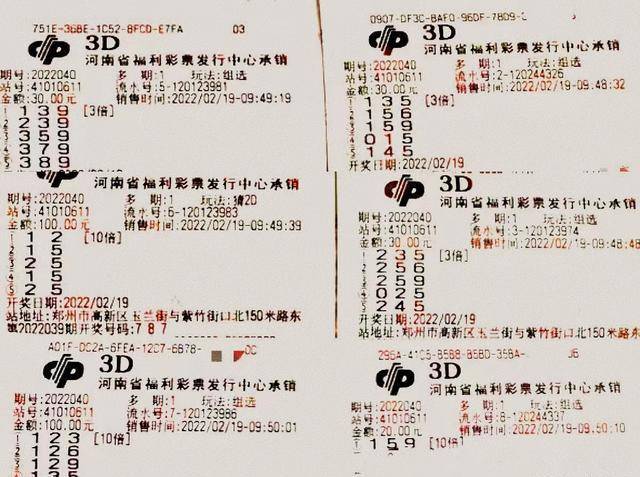 751E-36BE-1C52-8FCD-E7FA 03
3D
河南省福利彩票发行中心承销
期号:2022040 多 期:1 玩法:组选
站号:41010611 流水号:5-120123981
金额:30.00元 销售时间:2022/02/19-09:49:19
139 [3倍]
239
359
379
389
3D
河南省福利彩票发行中心承销
期号:2022040 多 期:1 玩法:猜2D
站号:41010611 流水号:6-120123983
金额:100.00元 销售时间:2022/02/19-09:49:39
12 [10倍]
15
25
15
25
开奖日期:2022/02/19
站地址:郑州市高新区玉兰街与紫竹街口北150米路东
第2022039期开奖号码:7 8 7
3D
河南省福利彩票发行中心承销
期号:2022040 多 期:1 玩法:组选
站号:41010611 流水号:7-120123986
金额:100.00元 销售时间:2022/02/19-09:50:01
123 [10倍]
126
129
135
0907-DF3C-BAF0-96DF-78D9-
3D
河南省福利彩票发行中心承销
期号:2022040 多 期:1 玩法:组选
站号:41010611 流水号:2-120244326
金额:30.00元 销售时间:2022/02/19-09:48:32
135 [3倍]
156
159
015
145
开奖日期:2022/02/19
3D
河南省福利彩票发行中心承销
期号:2022040 多 期:1 玩法:组选
站号:41010611 流水号:3-120123974
金额:30.00元 销售时间:2022/02/19-09:48:48
235 [3倍]
256
259
025
245
开奖日期:2022/02/19
站地址:郑州市高新区玉兰街与紫竹街口北150米路东
3D
河南省福利彩票发行中心承销
期号:2022040 多 期:1 玩法:组选
站号:41010611 流水号:8-120244337
金额:20.00元 销售时间:2022/02/19-09:50:10
159 [10倍]